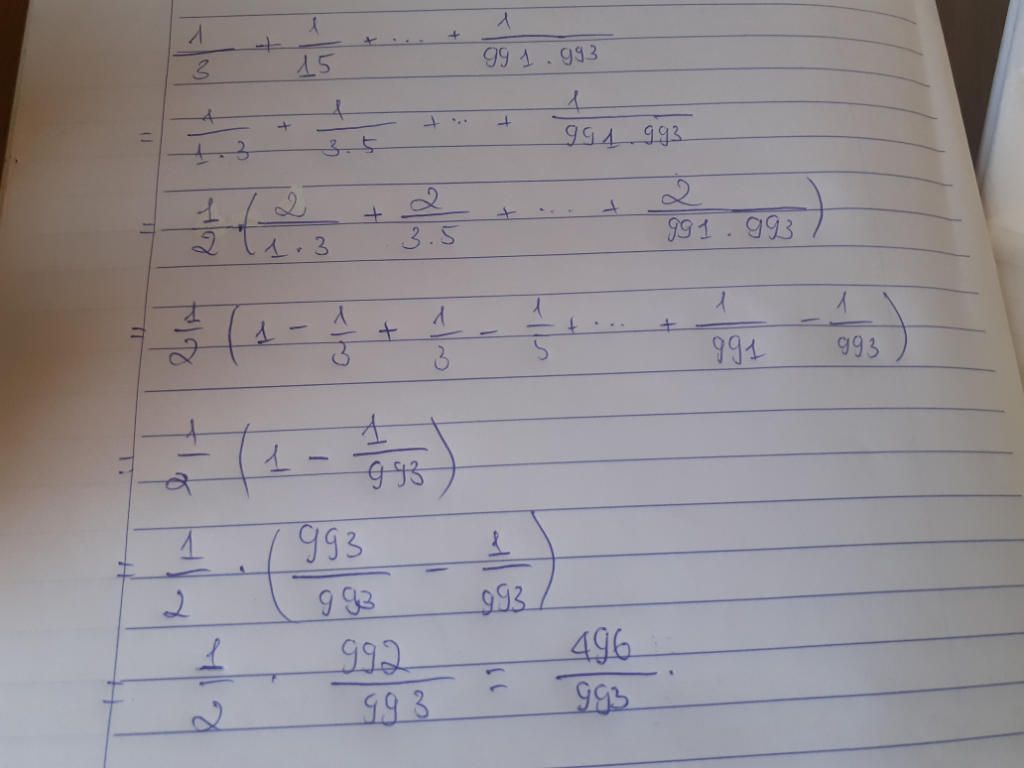 1/3 + 1/15 + ... + 1/991.993
= 1/1.3 + 1/3.5 + ... + 1/991.993
= 1/2.(2/1.3 + 2/3.5 + ... + 2/991.993)
= 1/2 (1 - 1/3 + 1/3 - 1/5 + ... + 1/991 - 1/993)
= 1/2 (1 - 1/993)
= 1/2 . (993/993 - 1/993)
= 1/2 . 992/993 = 496/993.